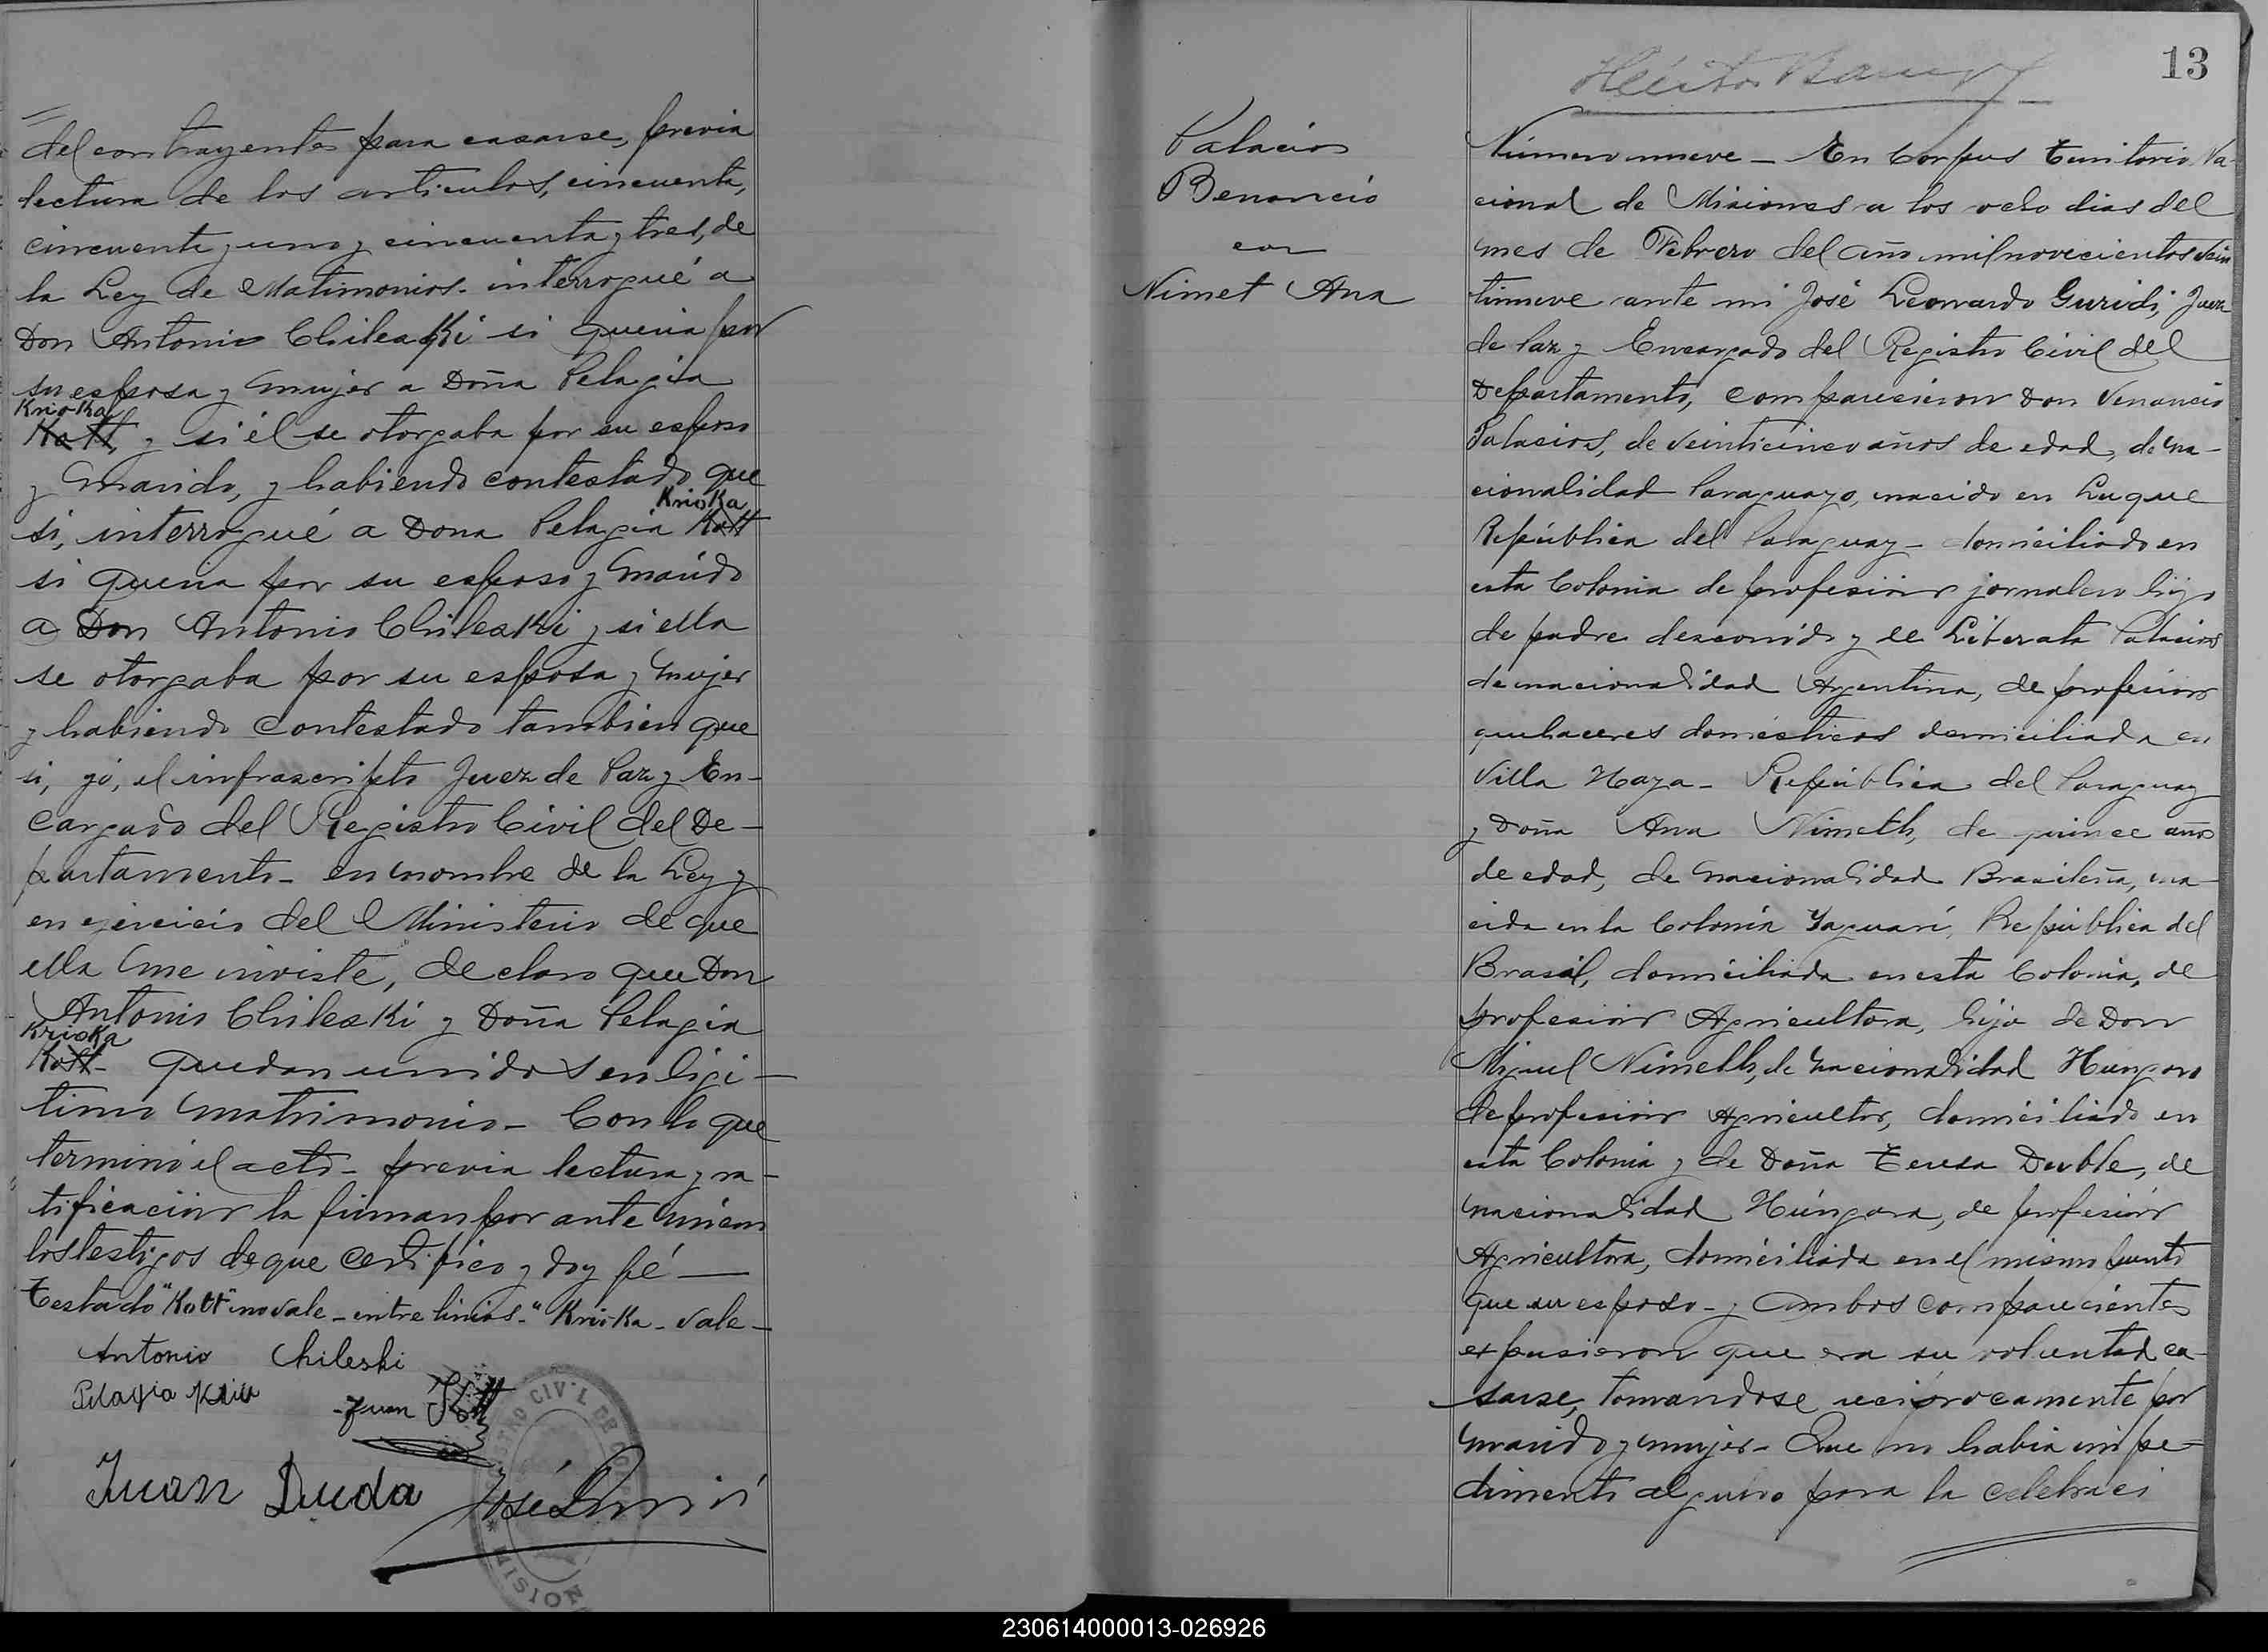 del contrayente para casarse, previa
lectura de los articulos, cincuenta,
cincuenta y uno y cincuenta y tres, de
la Ley de Matimonios. interrogué a
Don Antonio Chileski si queria por
su esposa y mujer a Doña Pelagia
Krioka
Kott, y si él se otorgaba por su esposo
y marido, y habiendo contestado que
Krioka
si, interrogué a Dona Pelagia Kott
si queria por su esposo y marido
a Don Antonio Chileski y si ella
se otorgaba por su esposa y mujer
y habiendo contestado tambien que
si, yó, el infrascripto Juez de Paz y En-
cargado del Registro Civil del De-
partamento - en nombre de la Ley y
en ejercicio del Ministerio de que
ella me inviste, declaro que Don
Antonio Chileski y Doña Pelagia
Krioka
Kott - quedan unidos en ligi-
timo matrimonio - Con lo que
terminó el acto - previa lectura y ra-
tificacion la firman por ante mi con
los testigos de que certifico y doy fé —
Testado "Kott" no vale - entre linias - "Krioka - vale -
Antonio Chileski
Pelagia
Juan Kott
Juan Duda
CIVIL DE
MISION
13
Palacios
Benancio
con
Nimet Ana
Número nueve - En Corpus Territorio Na-
cional de Misiones a los ocho dias del
mes de Febrero del año mil novecientos vein
tinueve ante mi José Leonardo Guridi, Juez
de Paz y Encargado del Registro Civil del
Departamento, comparecieron Don Venancio
Palacios, de veinticinco años de edad, de na-
cionalidad Paraguayo, nacido en Luque
República del Paraguay - domiciliado en
esta Colonia de profesión jornalero hijo
de padre desconido y de Liberata Palacios
de nacionalidad Argentina, de profesion
quehaceres domésticos domiciliada en
Villa Haya - República del Paraguay
y Doña Ana Nimeth, de quince años
de edad, de nacionalidad Brasileña, na-
cida en la Colonia Yaguari, República del
Brasil, domiciliada en esta Colonia, de
profesion Agricultora, hija de Don
Miguel Nimeth, de nacionalidad Hungaro
de profesion Agricultor, domiciliado en
esta Colonia y de Doña Teresa Deuble, de
nacionalidad Húngara, de profesión
Agricultora, domiciliada en el mismo punto
que su esposo - y ambos comparecientes
expusieron que era su voluntad ca-
sarse, tomandose reciprocamente por
marido y mujer - Que no habia impe-
dimento alguno para la celebraci
230614000013-026926